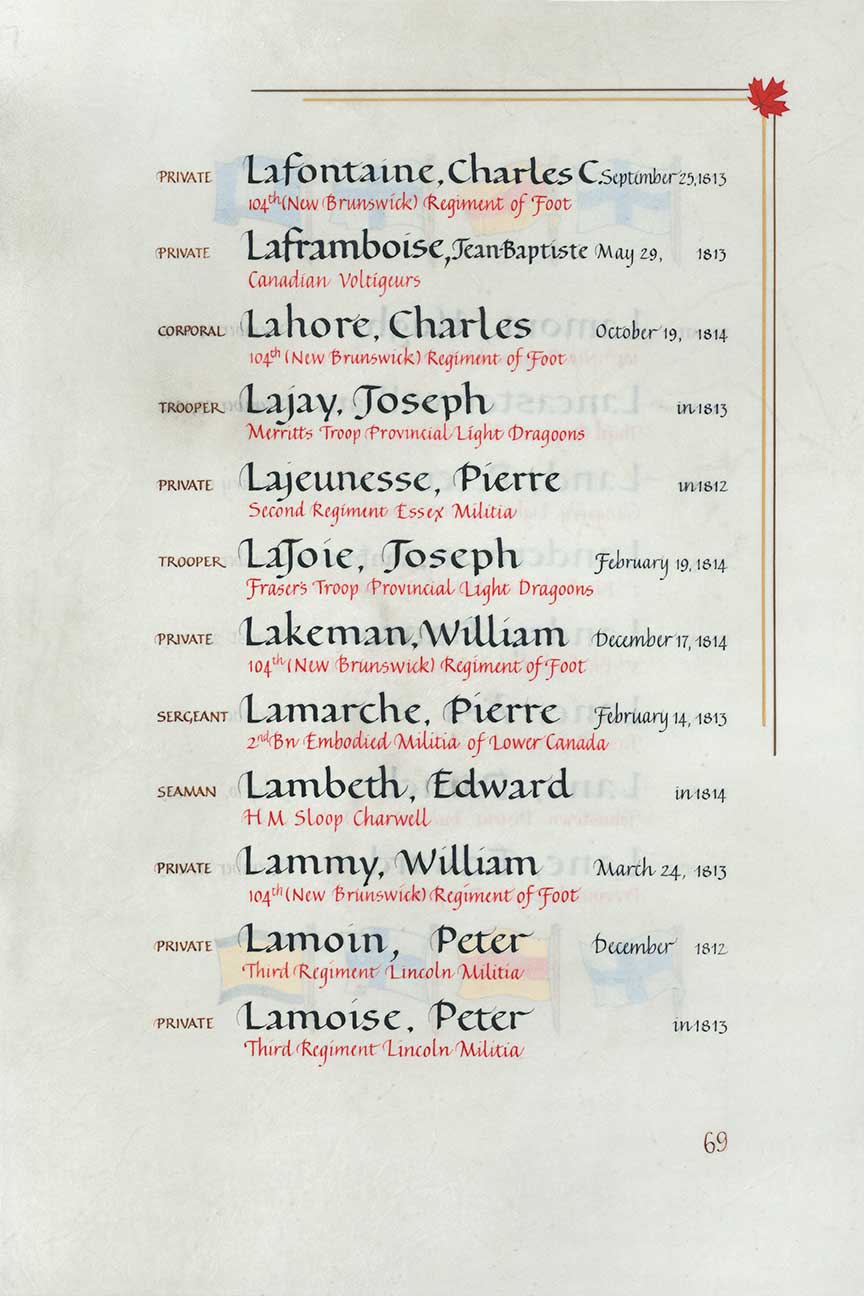 PRIVATE Lafontaine, Charles C. September 25, 1813
104th (New Brunswick) Regiment of Foot
PRIVATE Laframboise, Jean-Baptiste May 29, 1813
Canadian Voltigeurs
CORPORAL Lahore, Charles October 19, 1814
104th (New Brunswick) Regiment of Foot
TROOPER Lajay, Joseph in 1813
Merritt's Troop Provincial Light Dragoons
PRIVATE Lajeunesse, Pierre in 1812
Second Regiment Essex Militia
TROOPER LaJoie, Joseph February 19, 1814
Fraser's Troop Provincial Light Dragoons
PRIVATE Lakeman, William December 17, 1814
104th (New Brunswick) Regiment of Foot
SERGEANT Lamarche, Pierre February 14, 1813
2nd Bn Embodied Militia of Lower Canada
SEAMAN Lambeth, Edward in 1814
H M Sloop Charwell
PRIVATE Lammy, William March 24, 1813
104th (New Brunswick) Regiment of Foot
PRIVATE Lamoin, Peter December 1812
Third Regiment Lincoln Militia
PRIVATE Lamoise, Peter in 1813
Third Regiment Lincoln Militia
69